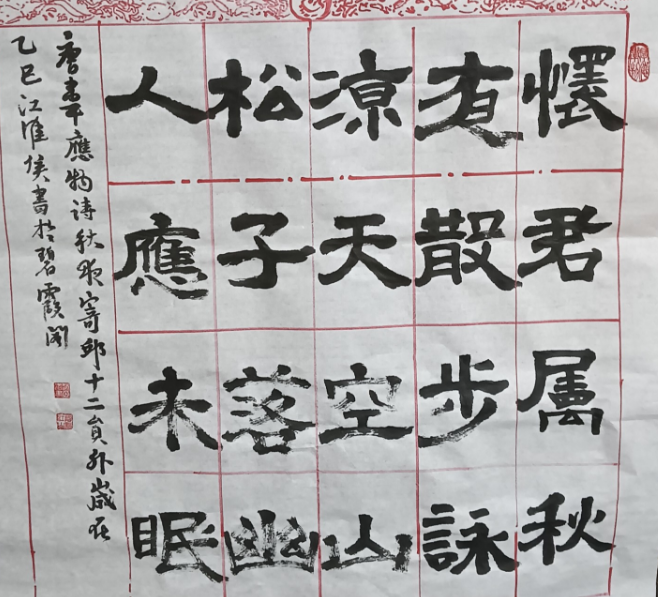 懷君屬秋
夜散步詠
涼天空山
松子落幽
人應未眠
唐韋應物詩秋夜寄邱十二員外歲在
乙巳江淮侯書於碧霞閣